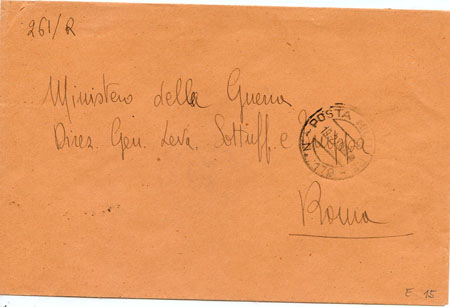 261/R
Ministero della Guerra
Direz. Gen. Leva, Sottuff. e Truppa
POSTA
Roma
E 15